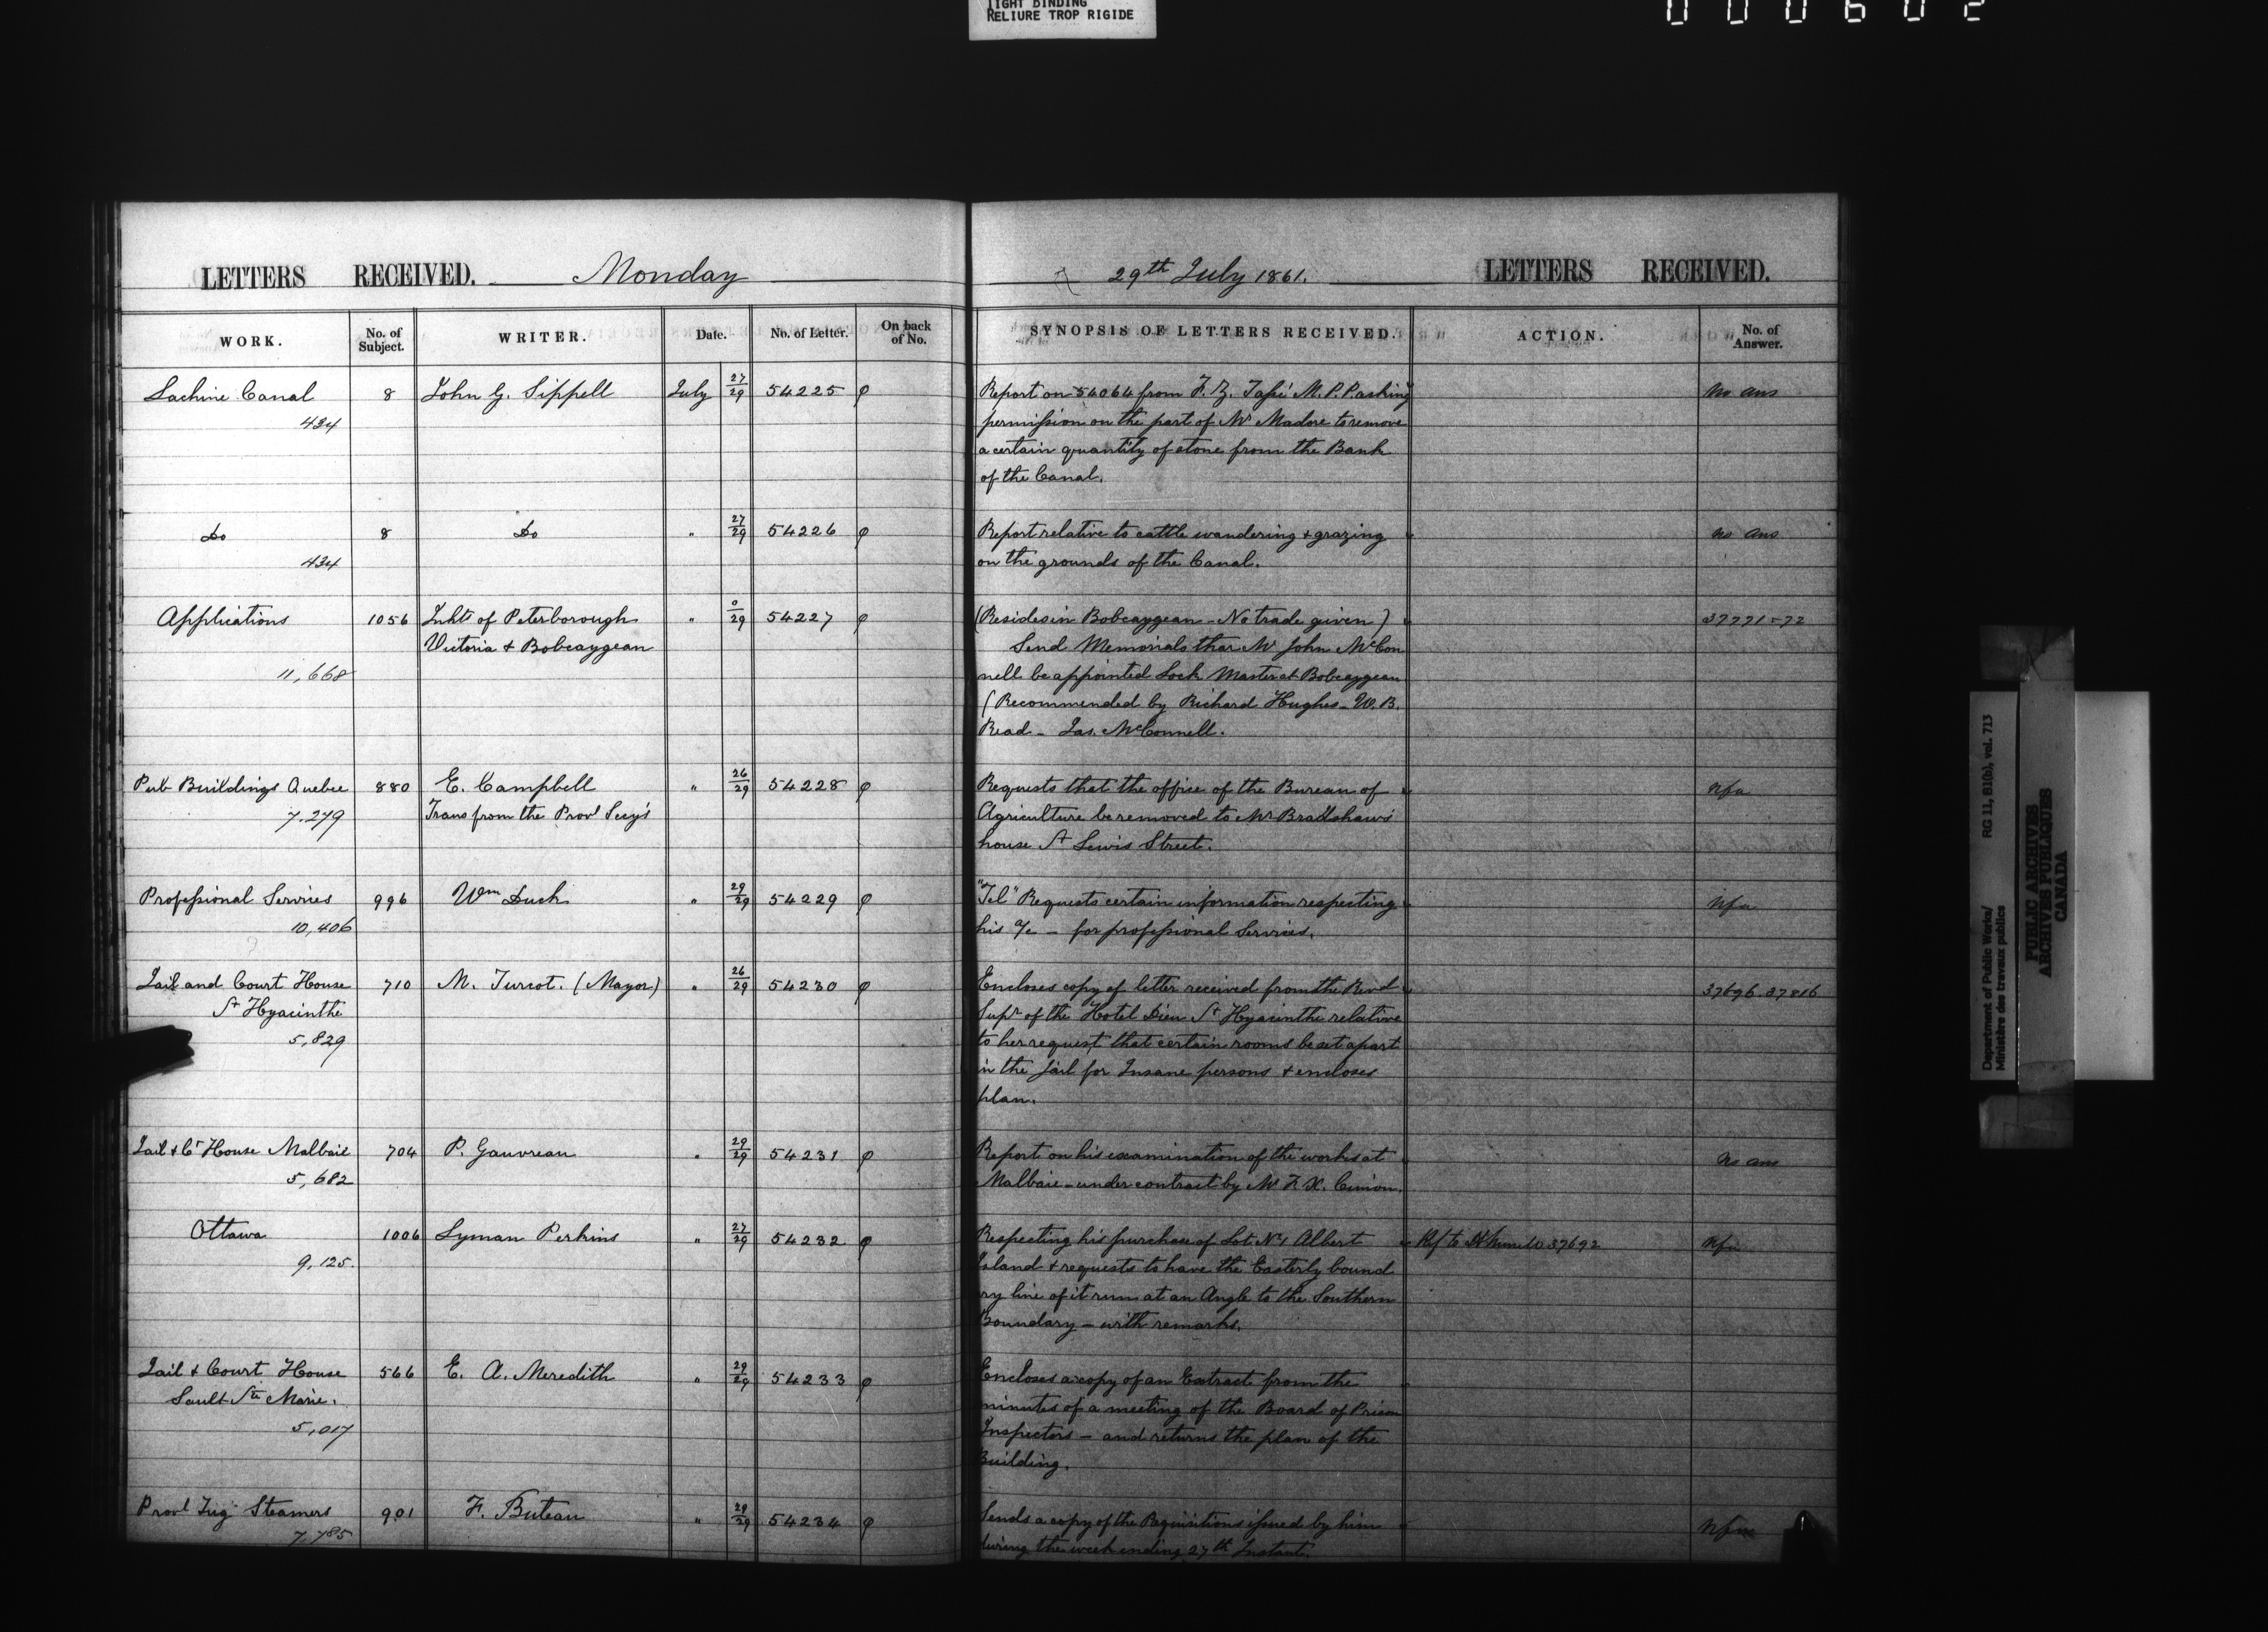 TIGHT BINDING
RELIURE TROP RIGIDE
000602
LETTERS RECEIVED. Monday
29th July 1861. LETTERS RECEIVED.
WORK. No. of Subject. WRITER. Date. No. of Letter. On back of No. SYNOPSIS OF LETTERS RECEIVED. ACTION. No. of Answer.
Lachine Canal 8 John G. Sippell July 27/29 54225 φ Report on 54064 from F. Z. Tassé M.P.P. asking No ans
434 permission on the part of Mr Madore to remove
a certain quantity of stone from the Bank
of the Canal.
Do 8 Do " 27/29 54226 φ Report relative to cattle wandering + grazing no ans
434 on the grounds of the Canal.
Applications 1056 Inhts of Peterborough " 0/29 54227 φ (Resides in Bobcaygean - No trade given) 37771-72
Victoria + Bobcaygean Send Memorials that Mr John McCon
11,668 nell be appointed Lock Master at Bobcaygean
(Recommended by Richard Hughes - W. B.
Read - Jas. McConnell.
Pub Buildings Quebec 880 E. Campbell " 26/29 54228 φ Requests that the office of the Bureau of Nfa
7.279 Trans from the Provl Secy's Agriculture be removed to Mr Bradshaw's
house St Lewis Street.
Professional Services 996 Wm Duck " 29/29 54229 φ "Tel" Requests certain information respecting Nfa
10,406 his a/c - for professional Services.
Jail and Court House 710 M. Turcot. (Mayor) " 26/29 54230 φ Encloses copy of letter received from the Revd 37696.37816
St Hyacinthe Supr of the Hotel Dieu St Hyacinthe relative
5,829 to her request that certain rooms be set apart
in the Jail for Insane persons + encloses
plan.
Jail + Ct House Malbaie 704 P. Gauvreau " 29/29 54231 φ Report on his examination of the works at No ans
5,682 Malbaie - under contract by Mr F. X. Cimon.
Ottawa 1006 Lyman Perkins " 27/29 54232 φ Respecting his purchase of Lot No 1 Albert Ref to 37692 Nfa
9,125. Island + requests to have the Easterly bound
ry line of it run at an Angle to the Southern
Boundary - with remarks.
Jail + Court House 566 E. A. Meredith " 29/29 54233 φ Encloses a copy of an Extract from the
Sault Ste Marie. minutes of a meeting of the Board of Prison
5,017 Inspectors - and returns the plan of the
Building.
Provl Tug Steamers 901 F. Buteau " 29/29 54234 φ Sends a copy of the Requisitions issued by him Nfa
7,785 during the week ending 27th Instant.
Department of Public Works/ RG 11, B1(b), vol. 713
Ministère des travaux publics
PUBLIC ARCHIVES
ARCHIVES PUBLIQUES
CANADA